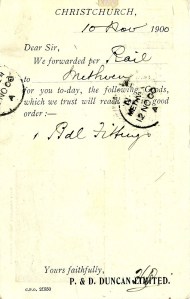 CHRISTCHURCH,
10 Nov 1900
Dear Sir,
We forwarded per Rail
to Methven
for you to-day, the following goods,
which we trust will reach in good
order:—
1 Bdl Fittings
METHVEN
12 NO 00
Yours faithfully,
P. & D. DUNCAN LIMITED.